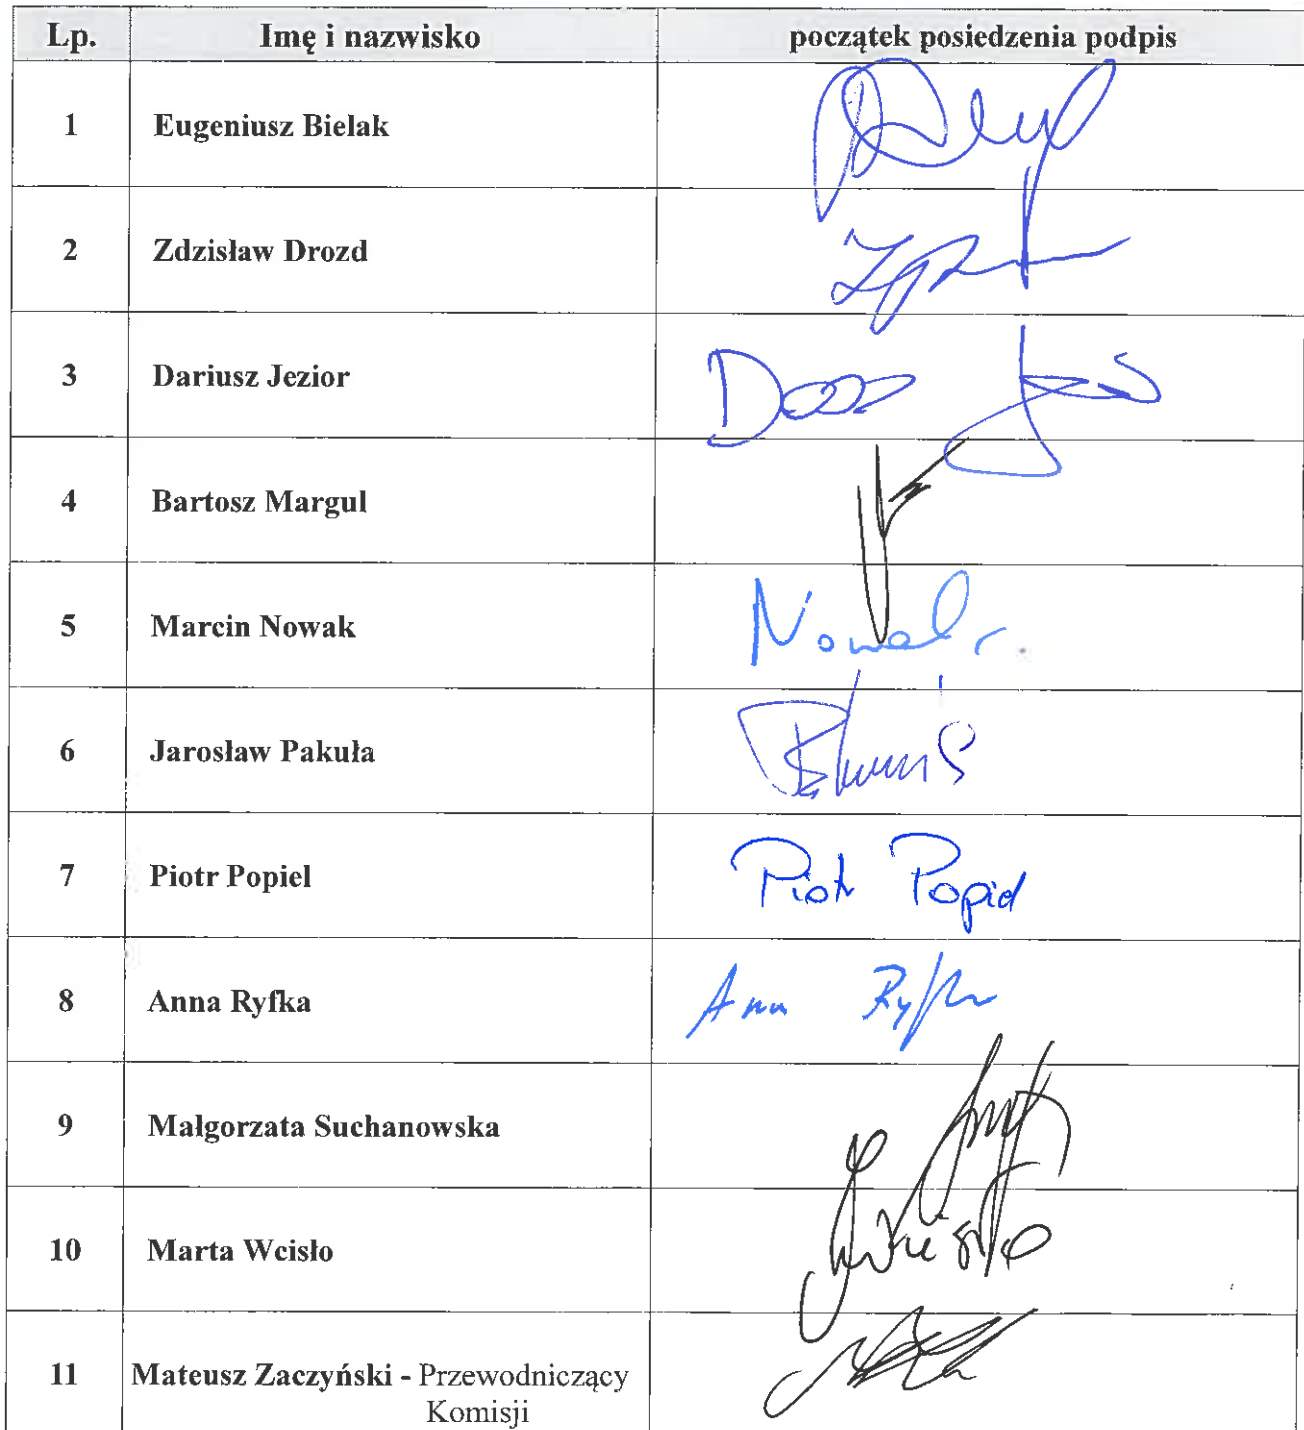 Lp. Imę i nazwisko początek posiedzenia podpis
1 Eugeniusz Bielak
2 Zdzisław Drozd
3 Dariusz Jezior
4 Bartosz Margul
5 Marcin Nowak Nowak
6 Jarosław Pakuła
7 Piotr Popiel Piotr Popiel
8 Anna Ryfka Anna Ryfka
9 Małgorzata Suchanowska
10 Marta Wcisło
11 Mateusz Zaczyński - Przewodniczący
Komisji